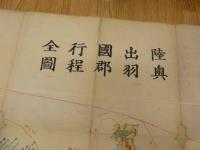 陸奥
出羽
國郡
行程
全圖